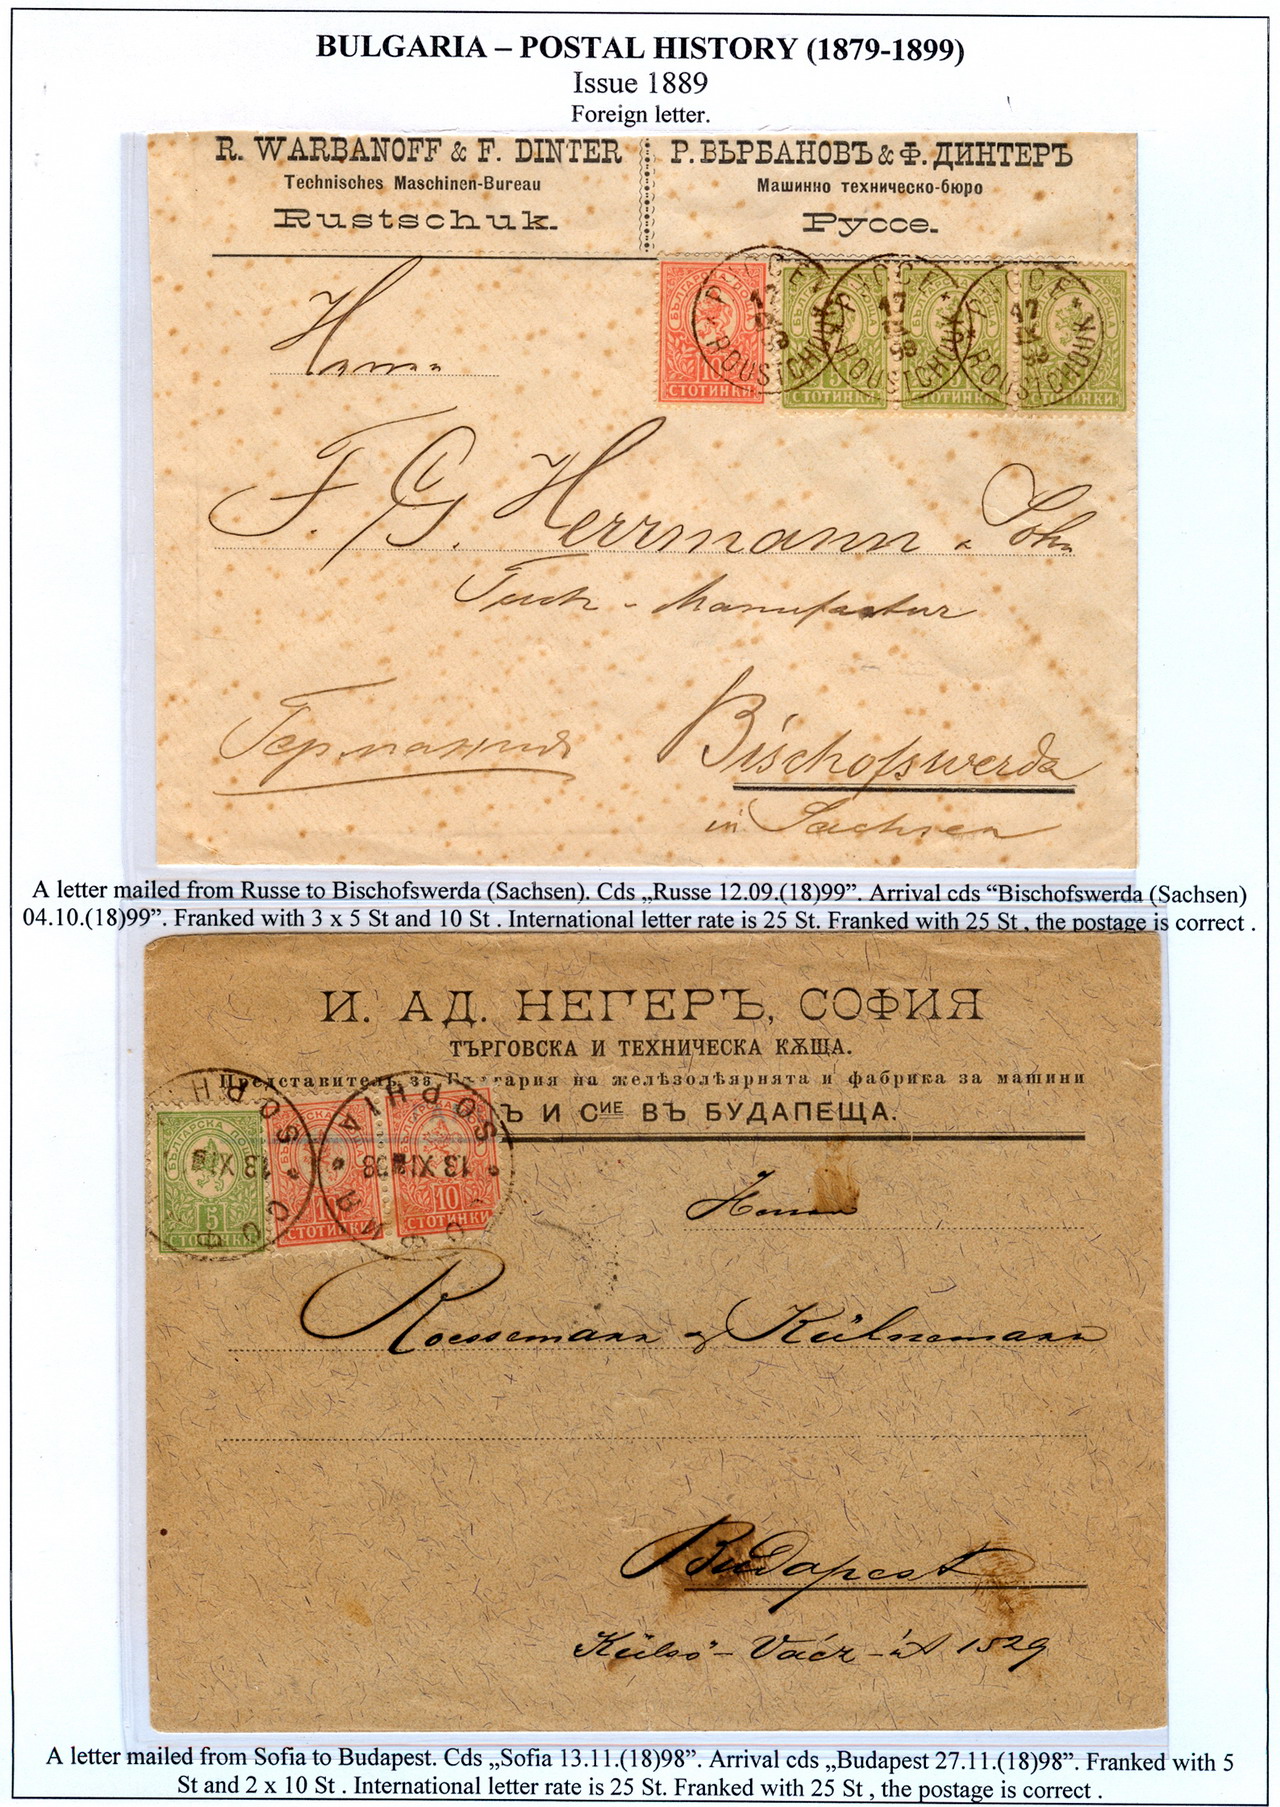 BULGARIA – POSTAL HISTORY (1879-1899)
Issue 1889
Foreign letter.
R. WARBANOFF & F. DINTER
Technisches Maschinen-Bureau
Rustschuk.
Р. ВЪРБАНОВЪ & Ф. ДИНТЕРЪ
Машинно техническо-бюро
Руссе.
БЪЛГАРСКА ПОЩА
10
СТОТИНКИ
5
СТОТИНКИ
5
СТОТИНКИ
СТОТИНКИ
ROUSTCHOUK
ROUSTCHOUK
ROUSTCHOUK
Herrn
F. G. Herrmann & Sohn
Tuch - Manufactur
Германия
Bischofswerda
in Sachsen
A letter mailed from Russe to Bischofswerda (Sachsen). Cds „Russe 12.09.(18)99”. Arrival cds “Bischofswerda (Sachsen)
04.10.(18)99”. Franked with 3 x 5 St and 10 St . International letter rate is 25 St. Franked with 25 St , the postage is correct .
И. АД. НЕГЕРЪ, СОФИЯ
ТЪРГОВСКА И ТЕХНИЧЕСКА КѪЩА.
Представитель за България на желѣзолѣярнята и фабрика за машини
Ъ И СИЕ ВЪ БУДАПЕЩА.
БЪЛГАРСКА ПОЩА
5
СТОТИНКИ
10
СТОТИНКИ
10
СТОТИНКИ
SOPHIA
13 XI 98
Herrn
Roessemann & Kühnemann
Budapest
Külsö - Vácz - út 1529
A letter mailed from Sofia to Budapest. Cds „Sofia 13.11.(18)98”. Arrival cds „Budapest 27.11.(18)98”. Franked with 5
St and 2 x 10 St . International letter rate is 25 St. Franked with 25 St , the postage is correct .